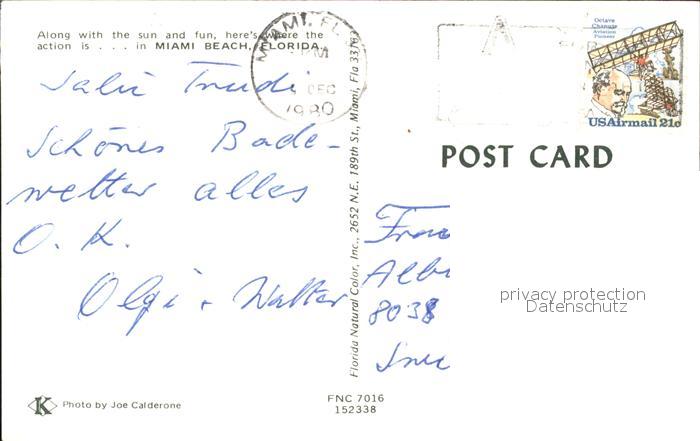 Along with the sun and fun, here's where the
action is . . . in MIAMI BEACH, FLORIDA.
MIAMI, FL
PM
DEC
1980
Octave
Chanute
Aviation
Pioneer
USAirmail 21c
POST CARD
Salü Trudi
Schönes Bade-
wetter alles
O. K.
Olgi + Walter
Florida Natural Color, Inc., 2652 N.E. 189th St., Miami, Fla 33163
Frau
8038
privacy protection
Datenschutz
K
Photo by Joe Calderone
FNC 7016
152338